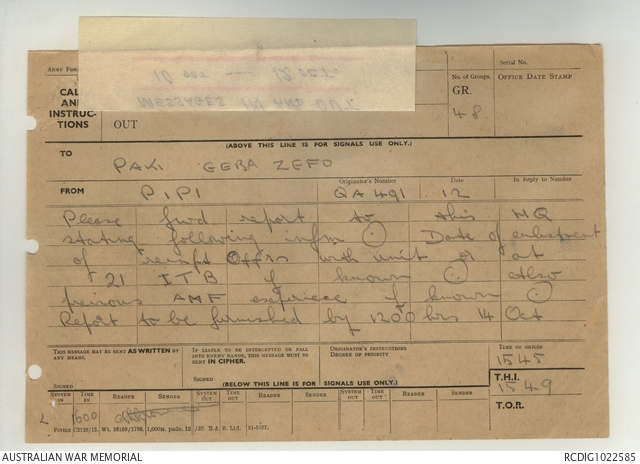 10 OCT — 12 OCT.
MESSAGES IN AND OUT
ARMY FOR
Serial No.
CAL
AND
INSTRUC-
TIONS
OUT
No. of Groups.
GR.
48
OFFICE DATE STAMP
(ABOVE THIS LINE IS FOR SIGNALS USE ONLY.)
TO
PAKI GEBA ZEFO
FROM
PIPI
Originator's Number
QA 491
Date
12
In Reply to Number
Please fwd report to this HQ
stating following infm . Date of enlistment
of reinft Offrs with unit or at
21 ITB if known . Also
previous AMF experience if known .
Report to be furnished by 1200 hrs 14 Oct
THIS MESSAGE MAY BE SENT AS WRITTEN BY
ANY MEANS.
SIGNED
IF LIABLE TO BE INTERCEPTED OR FALL
INTO ENEMY HANDS, THIS MESSAGE MUST BE
SENT IN CIPHER.
SIGNED
ORIGINATOR'S INSTRUCTIONS
DEGREE OF PRIORITY
TIME OF ORIGIN
1545
T.H.I.
1549
T.O.R.
(BELOW THIS LINE IS FOR SIGNALS USE ONLY.)
SYSTEM IN
TIME IN
READER
SENDER
SYSTEM OUT
TIME OUT
READER
SENDER
SYSTEM OUT
TIME OUT
READER
SENDER
L 1600
Forms C2128/15.
AUSTRALIAN WAR MEMORIAL
RCDIG1022585